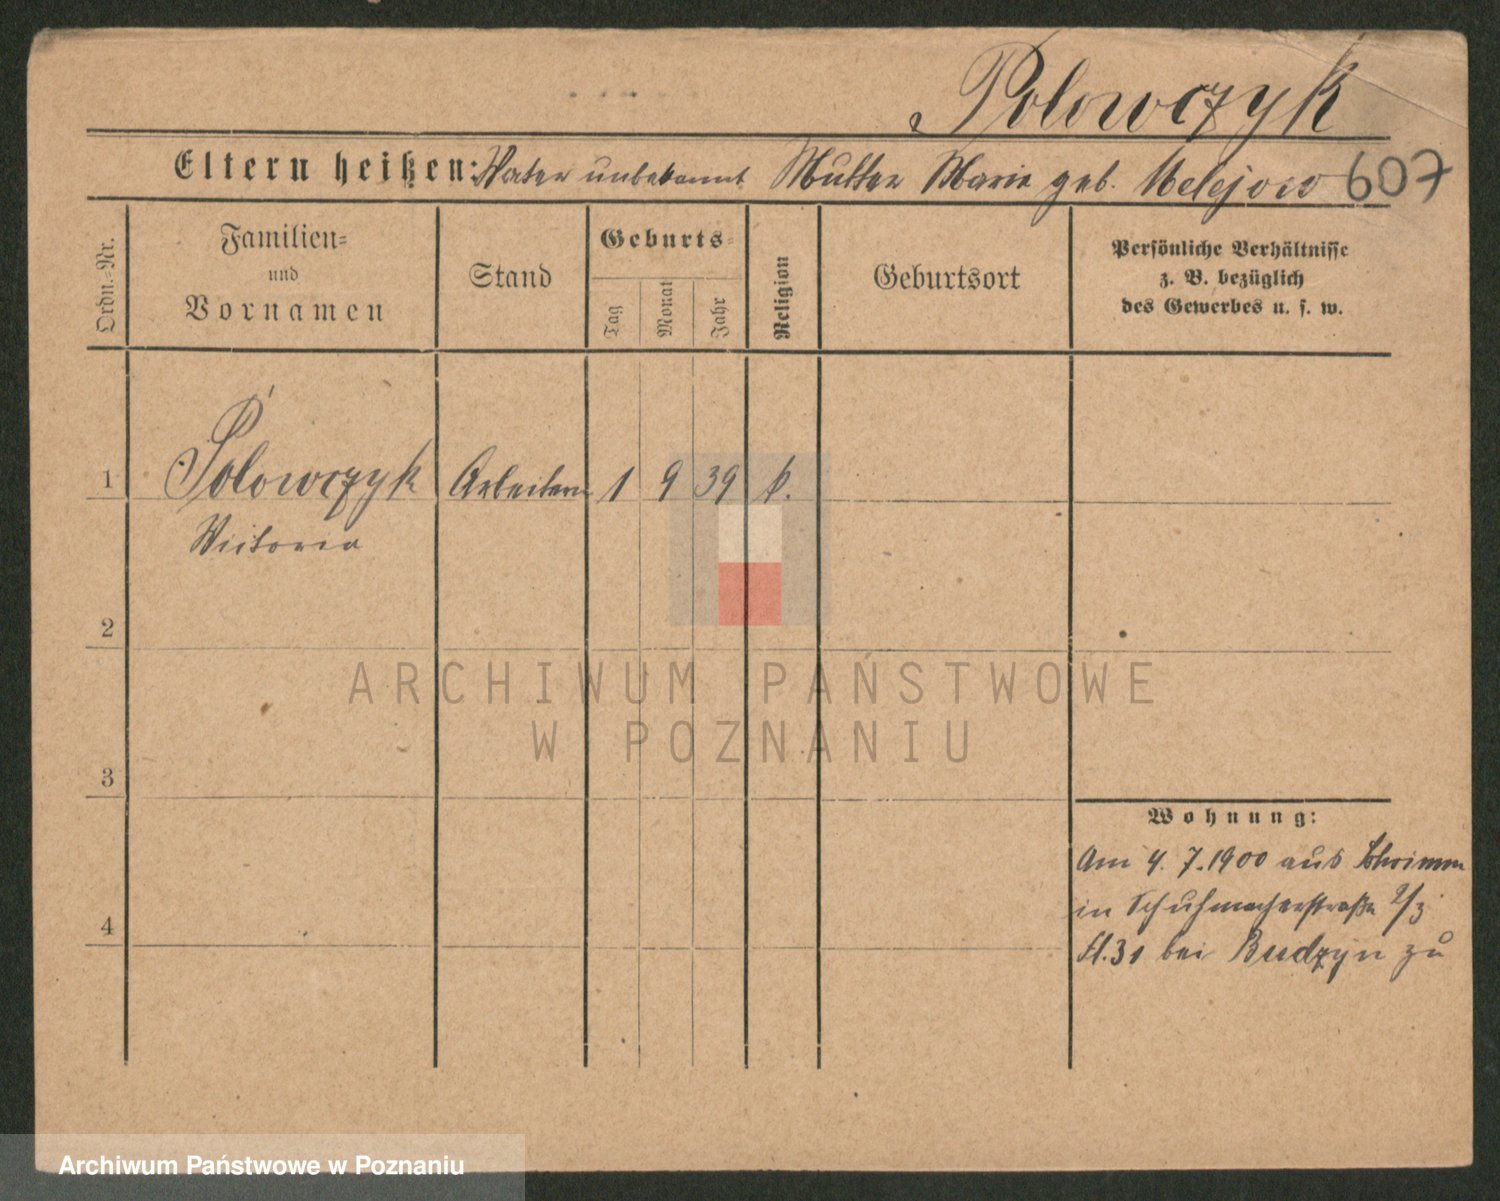 Polowczyk
Eltern heißen: Vater unbekannt Mutter Marie geb. 607
Ordn.=Nr.
Familien=
und
Vornamen
Stand
Geburts=
Tag
Monat
Jahr
Religion
Geburtsort
Persönliche Verhältnisse
z. B. bezüglich
des Gewerbes u. s. w.
1 Polowczyk Arbeiterin 1 9 39 k.
Victoria
2
ARCHIWUM PAŃSTWOWE
W POZNANIU
3
Wohnung:
Am 4. 7. 1900 aus Schrimm
in Schuhmacherstraße
bei Budzyn zu
4
Archiwum Państwowe w Poznaniu